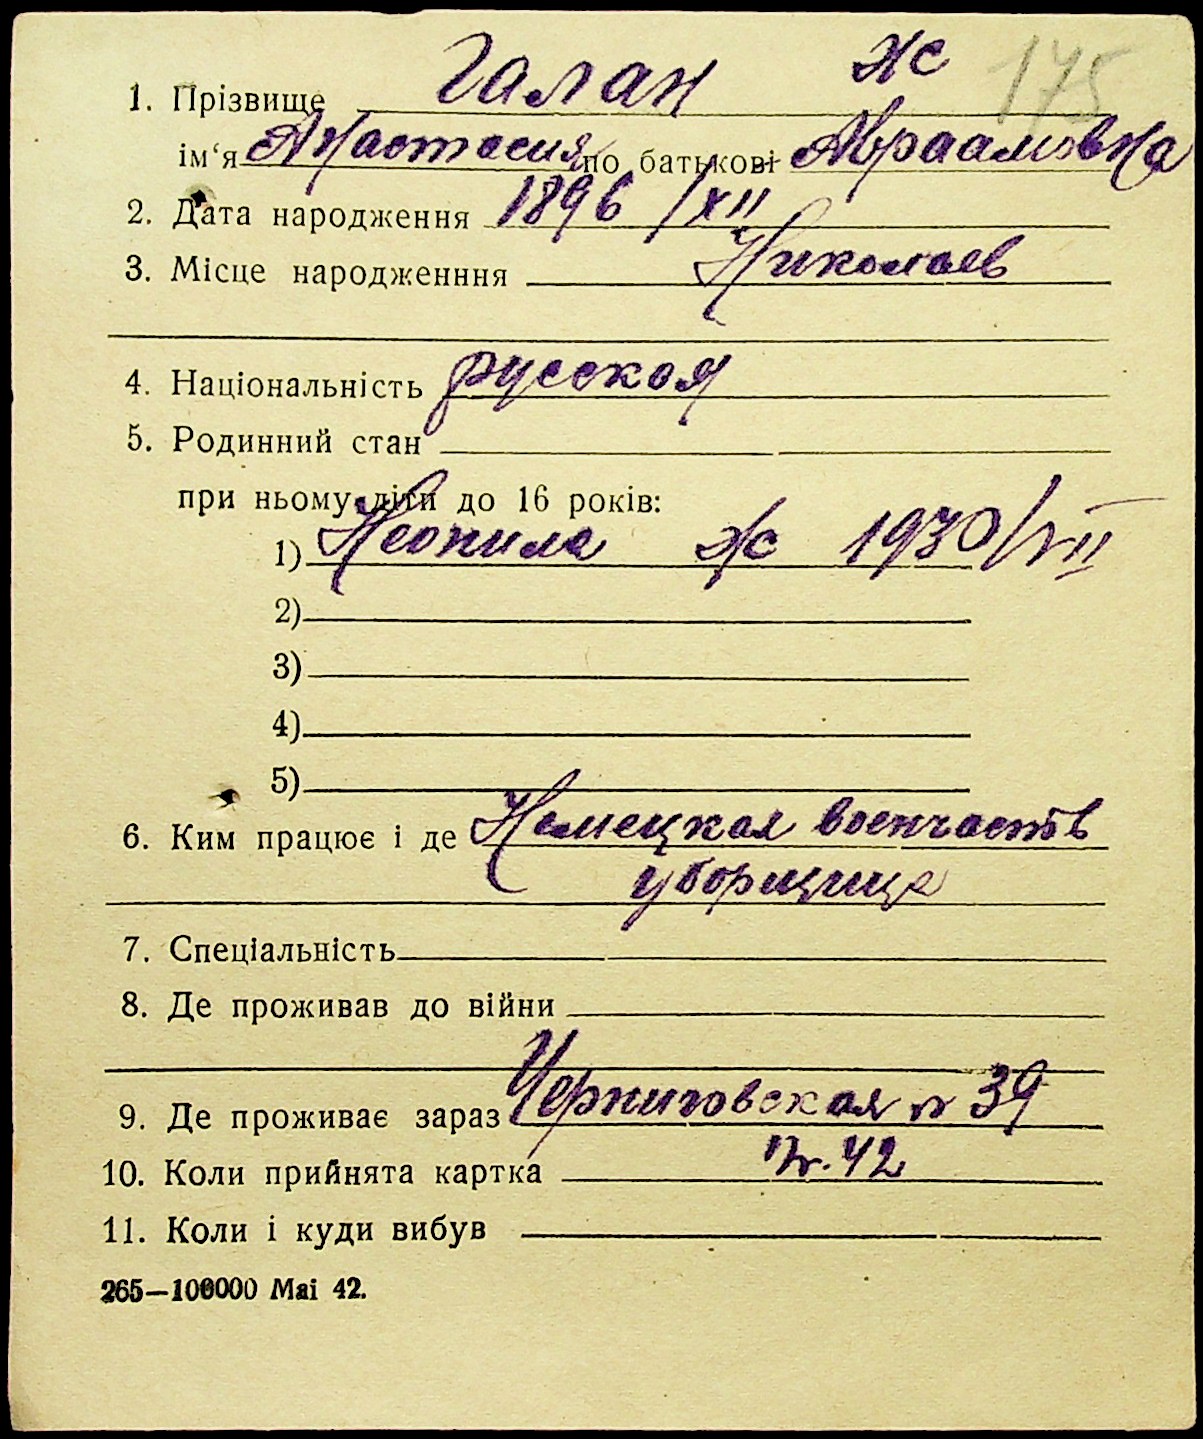 175
1. Прізвище Галан Ж
ім‘я Анастасия по батькові Авраамовна
2. Дата народження 1896/XII
3. Місце народженння Николаев
4. Національність русская
5. Родинний стан
при ньому діти до 16 років:
1) Неонила Ж 1930/VII
2)
3)
4)
5)
6. Ким працює і де Немецкая воєнчасть
уборщица
7. Спеціальність
8. Де проживав до війни
9. Де проживає зараз Черниговская № 39
10. Коли прийнята картка 42
11. Коли і куди вибув
265—100000 Mai 42.